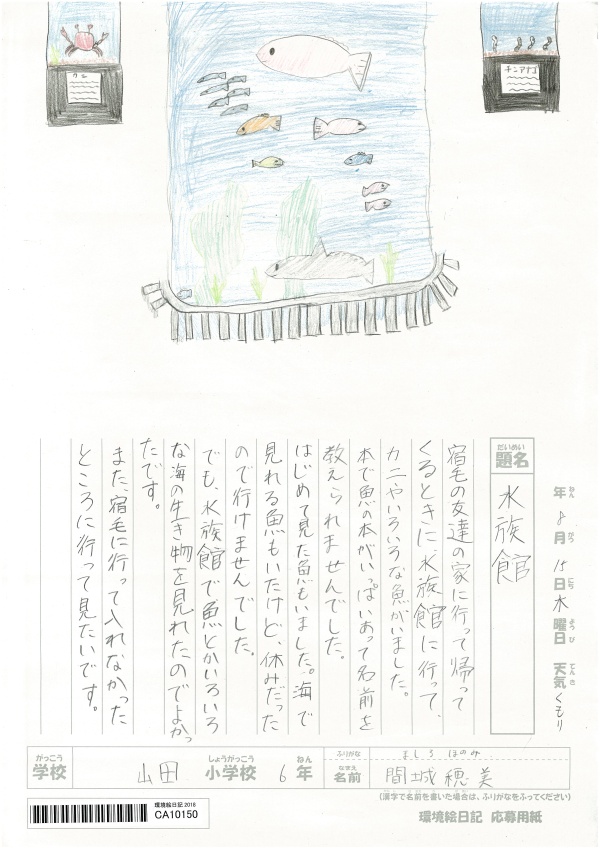 カニ
チンアナゴ
年 8月 15日 木曜日 天気 くもり
ねん がつ にち ようび てんき
だいめい
題名
水族館
宿毛の友達の家に行って帰って
くるときに、水族館に行って、
カニやいろいろな魚がいました。
本で魚の本がいっぱいあって名前を
教えられませんでした。
はじめて見た魚もいました。海で
見れる魚もいたけど、休みだった
ので行けませんでした。
でも、水族館で魚とかいろいろ
な海の生き物を見れたのでよかっ
たです。
また、宿毛に行って入れなかった
ところに行って見たいです。
がっこう
学校
山田
しょうがっこう
小学校
6
ねん
年
ふりがな
ましろ ほのみ
なまえ
名前
間城 穂美
(漢字で名前を書いた場合は、ふりがなをふってください)
環境絵日記 2018
CA10150
環境絵日記 応募用紙